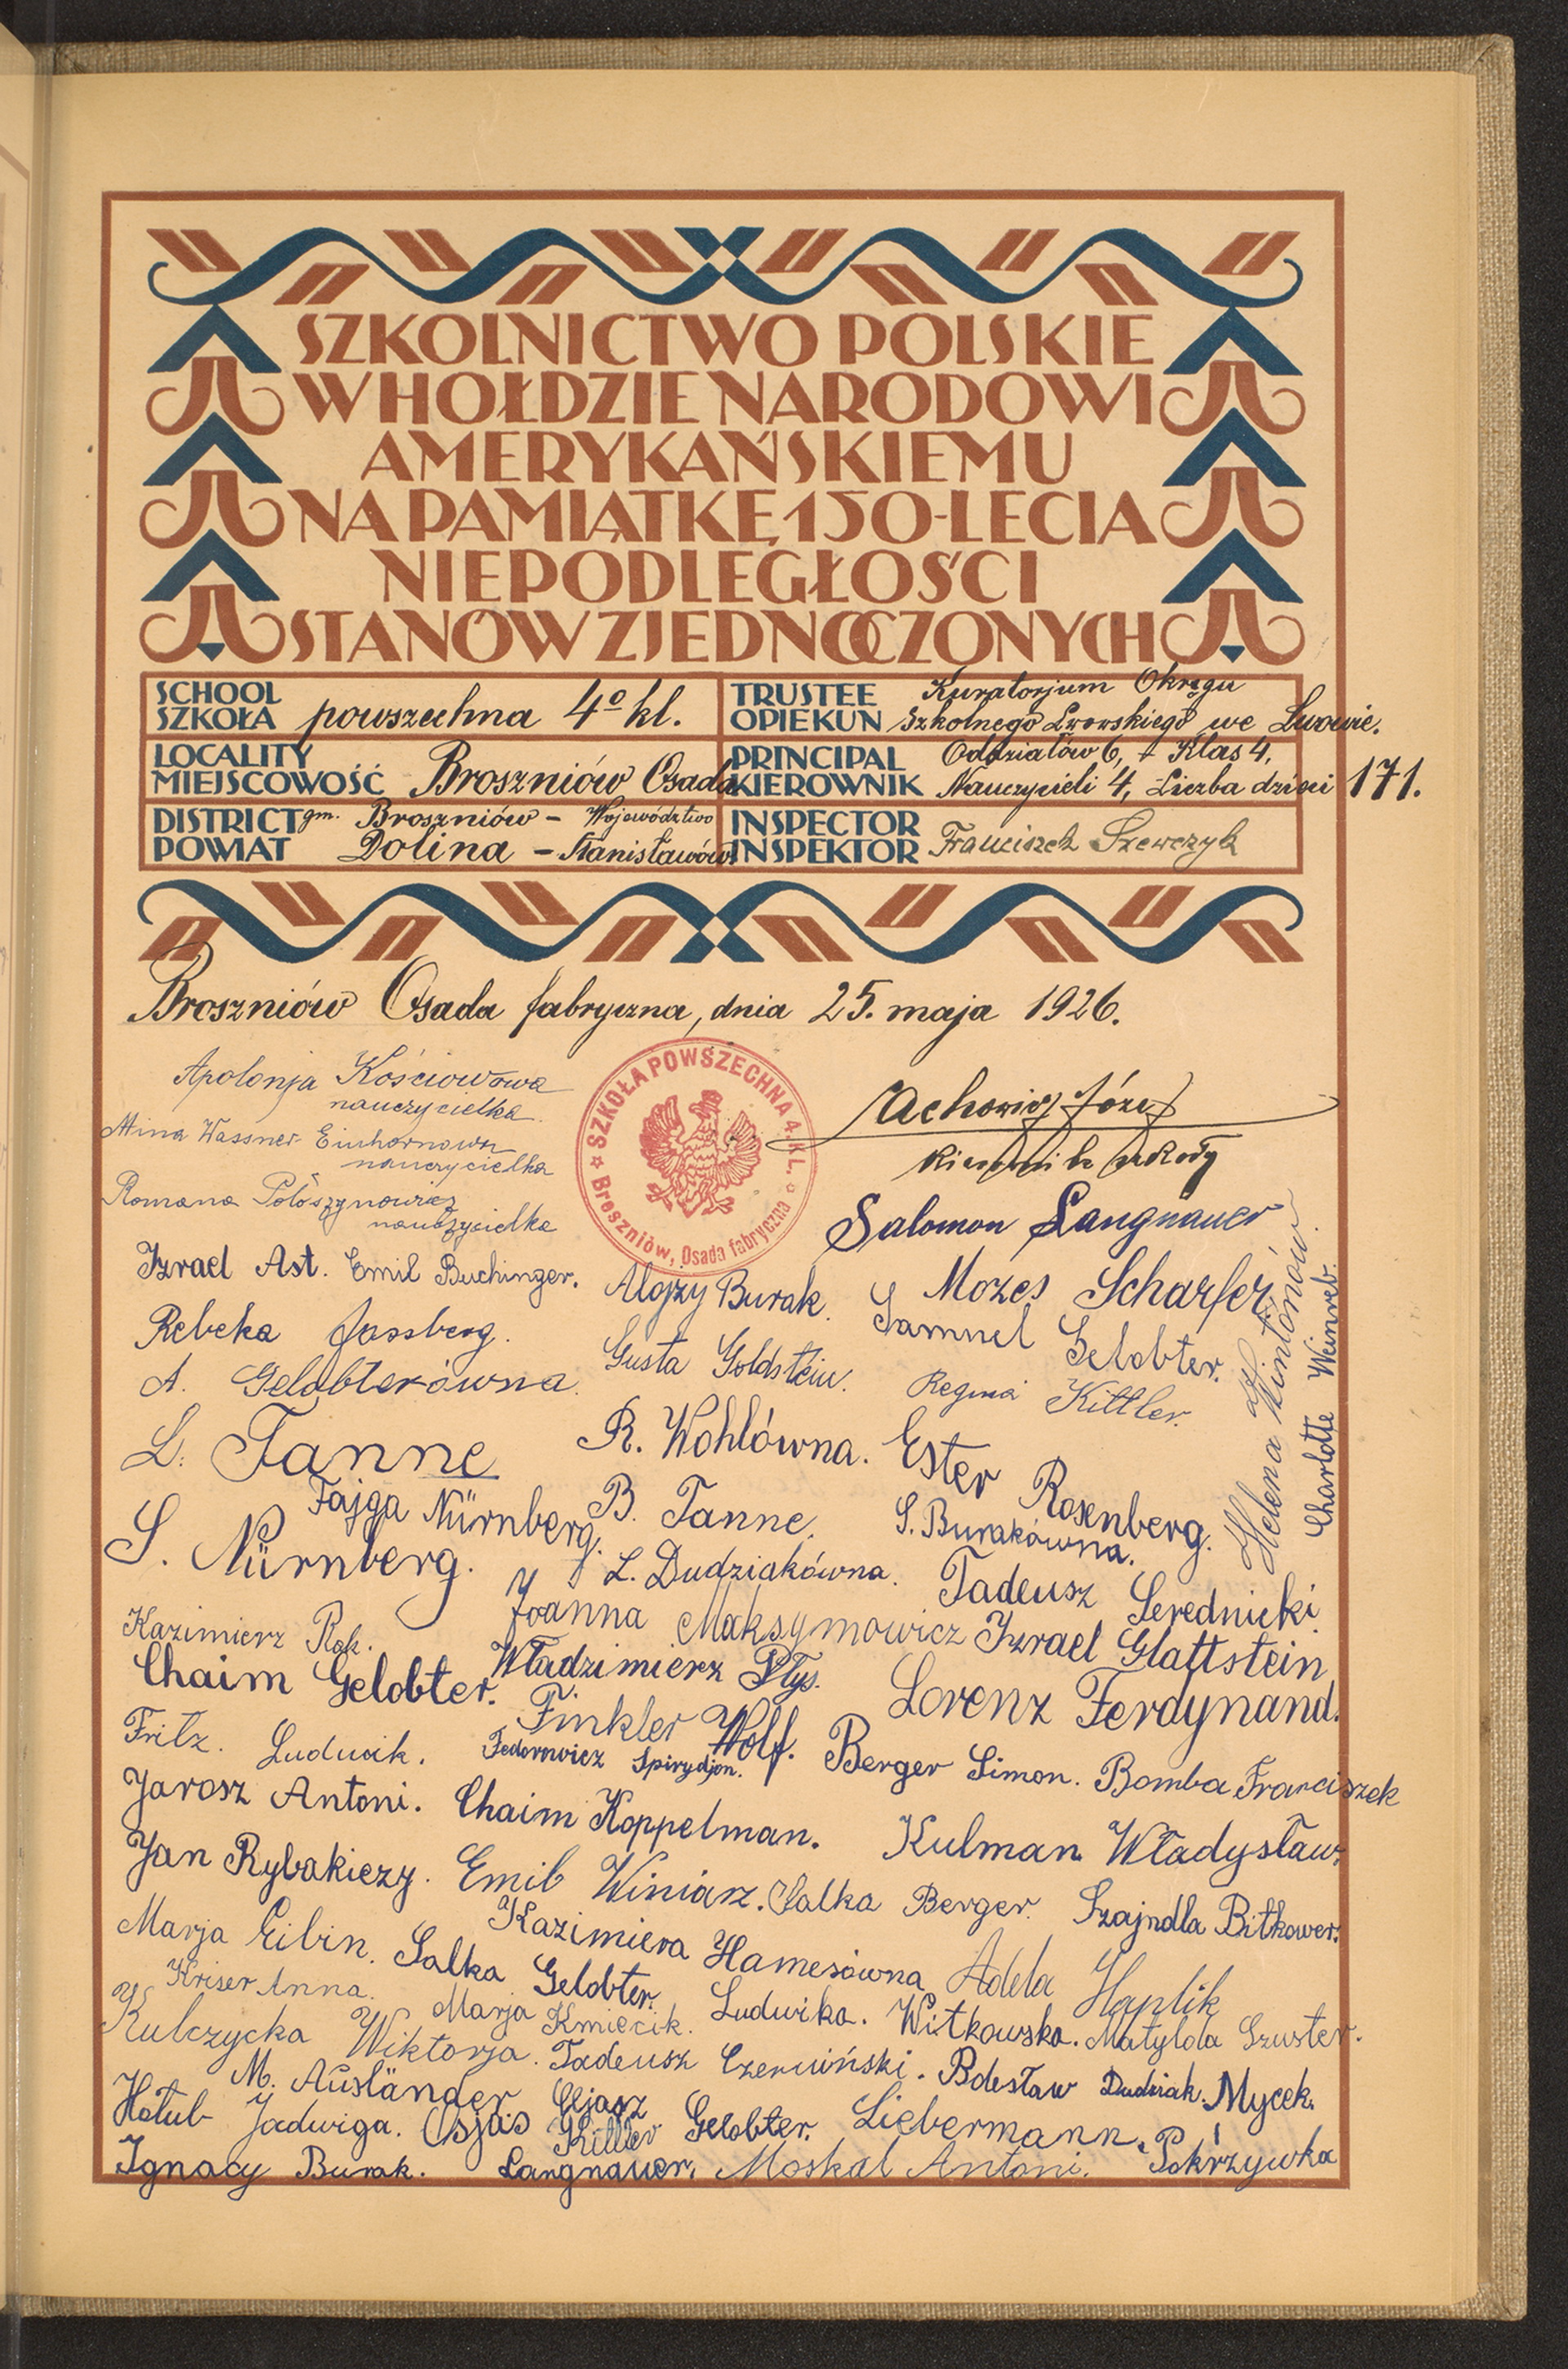 SZKOLNICTWO POLSKIE
W HOŁDZIE NARODOWI
AMERYKAŃSKIEMU
NA PAMIĄTKĘ 150-LECIA
NIEPODLEGŁOŚCI
STANÓW ZJEDNOCZONYCH
SCHOOL
SZKOŁA powszechna 4º kl.
TRUSTEE Kuratorjum Okręgu
OPIEKUN Szkolnego Lwowskiego we Lwowie.
LOCALITY
MIEJSCOWOŚĆ Broszniów Osada
PRINCIPAL Oddziałów 6, + Klas 4,
KIEROWNIK Nauczycieli 4, Liczba dzieci 171.
DISTRICT gm. Broszniów - Województwo
POWIAT Dolina - Stanisławów
INSPECTOR
INSPEKTOR Franciszek Szewczyk
Broszniów Osada fabryczna, dnia 25. maja 1926.
Apolonja Kościowowa
nauczycielka
Mina Wassner Einhornowa
nauczycielka
Romana Połoszynowicz
nauczycielka
SZKOŁA POWSZECHNA 4. KL.
Broszniów, Osada fabryczna
Józef
kierownik szkoły
Salomon Langnauer
Izrael Ast. Emil Buchinger. Alojzy Burak. Mozes Scharfer
Rebeka Fassberg. Gusta Goldstein. Samuel Gelobter.
A. Gelobterówna. Regina Kittler.
L. Tanne R. Wohlówna. Ester Rosenberg.
Fajga Nürnberg. B. Tanne. S. Burakówna.
S. Nürnberg. L. Dudziakówna. Tadeusz Serednicki.
Helena Wintonów.
Charlotte Weinreb.
Kazimierz Rak. Joanna Maksymowicz Izrael Glattstein
Chaim Gelobter. Władzimierz Ptyś. Lorenz Ferdynand.
Fritz Ludwik. Finkler Wolf. Berger Simon. Bomba Franciszek
Fedorowicz Spirydjon.
Jarosz Antoni. Chaim Koppelman. Kulman Władysław.
Jan Rybakiezy. Emil Winiarz. Salka Berger. Szajndla Bitkower.
Marja Eibin. Kazimiera Hamesówna Adela Haplik
Kriser Anna. Salka Gelobter. Ludwika Witkowska. Matylda Szuster.
Kulczycka Wiktorja. Marja Kmiecik. Tadeusz Czerwiński. Bolesław Dudziak. Mycek.
M. Ausländer Eljasz Gelobter. Liebermann.
Hołub Jadwiga. Osjas Kittler Pokrzywka
Ignacy Burak. Langnauer. Moskal Antoni.